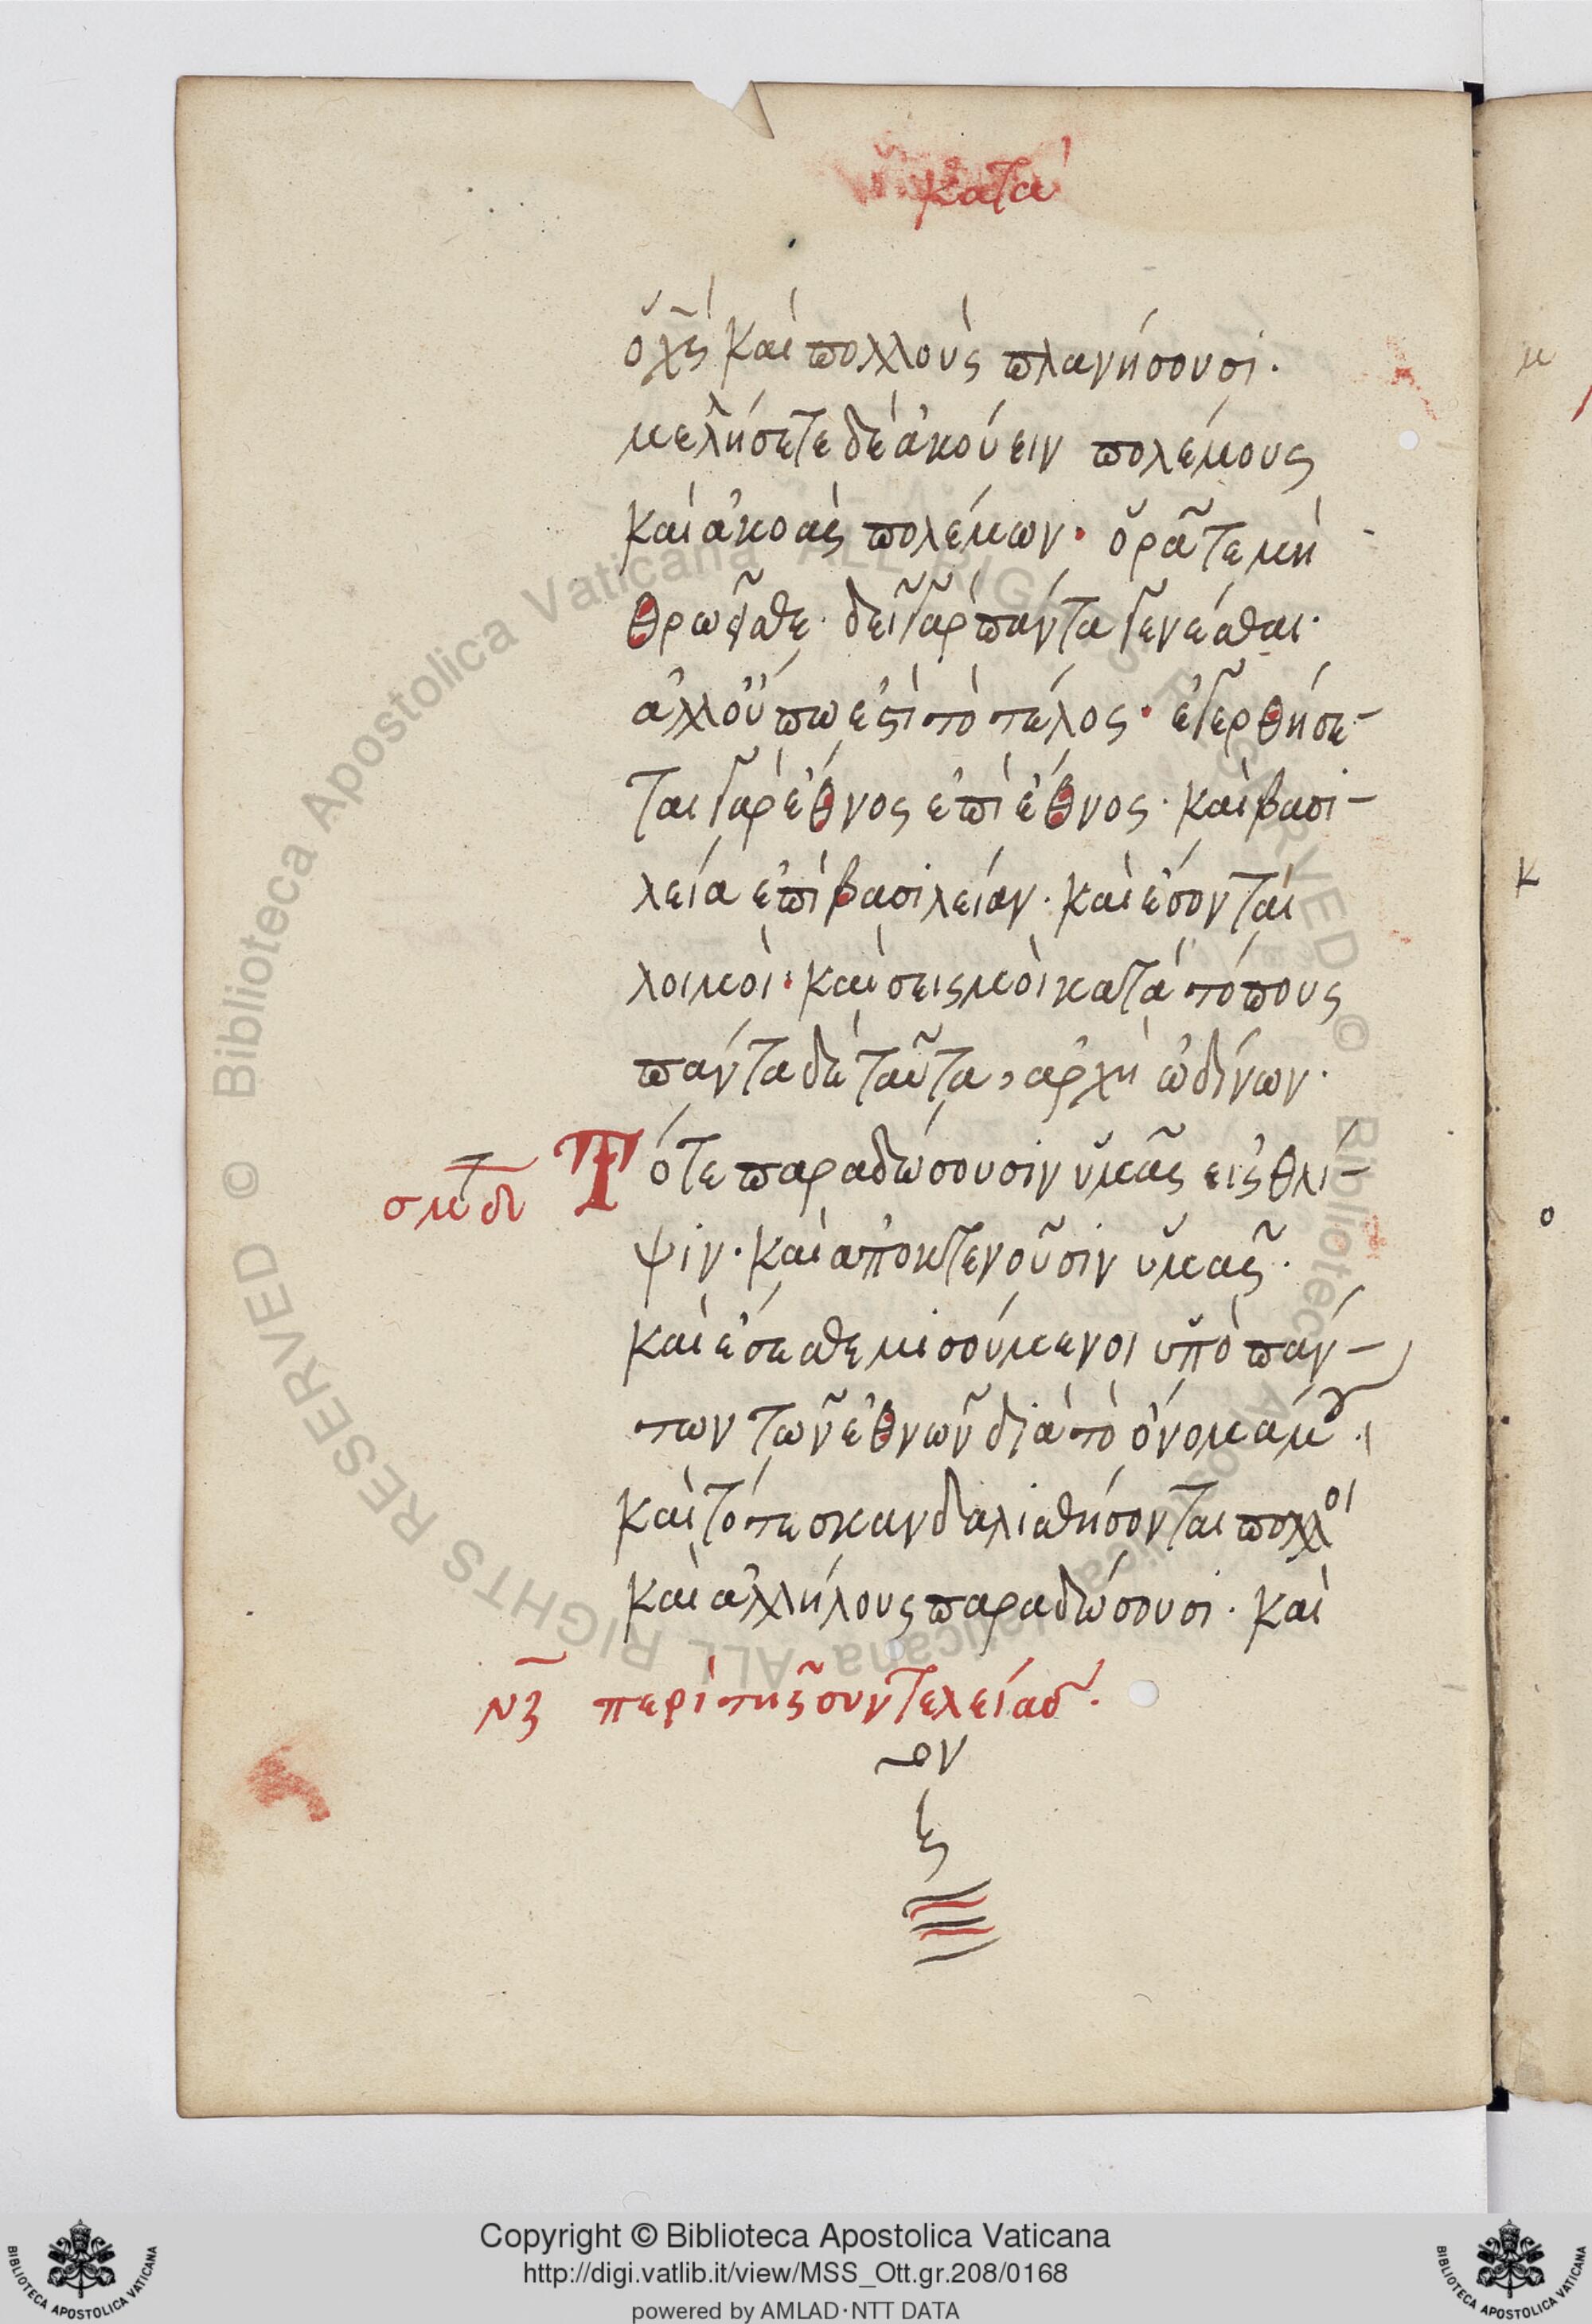 κατὰ
ὁ χς̄ καὶ πολλοὺς πλανήσουσι·
μελήσετε δὲ ἀκούειν πολέμους
καὶ ἀκοὰς πολέμων· ὁρᾶτε μὴ
θρωῆσθε· δεῖ γὰρ πάντα γενέσθαι·
ἀλλ οὔπω ἐστὶ τὸ τέλος· ἐγερθήσε-
ται γὰρ ἔθνος ἐπὶ ἔθνος· καὶ βασι-
λεία ἐπὶ βασιλείαν· καὶ ἔσονται
λοιμοὶ· καὶ σεισμοὶ κατὰ τόπους
πάντα δὲ ταῦτα, ἀρχὴ ὠδίνων·
Τότε παραδώσουσιν ὑμᾶς εἰς θλί-
ψιν· καὶ ἀποκτενοῦσιν ὑμᾶς·
καὶ ἔσεσθε μισούμενοι ὑπὸ πάν-
των τῶν ἐθνῶν διὰ τὸ ὄνομά μου·
καὶ τότε σκανδαλισθήσονται πολλοὶ
καὶ ἀλλήλους παραδώσουσι· καὶ
νζ περὶ τῆς συντελείας·
Biblioteca Apostolica Vaticana ALL RIGHTS RESERVED ©
Biblioteca Apostolica Vaticana ALL RIGHTS RESERVED ©
Copyright © Biblioteca Apostolica Vaticana
http://digi.vatlib.it/view/MSS_Ott.gr.208/0168
powered by AMLAD·NTT DATA
BIBLIOTECA APOSTOLICA VATICANA
BIBLIOTECA APOSTOLICA VATICANA